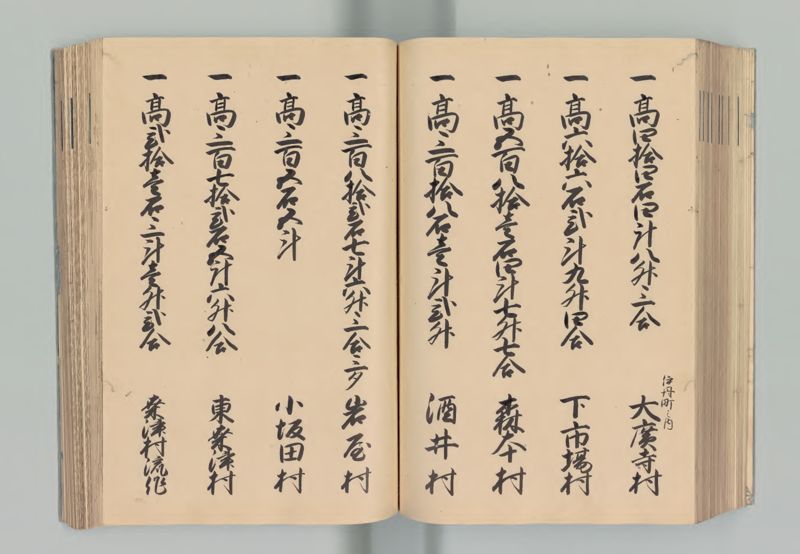 一高四拾四石四斗八升三合
伊丹町之内
大廣寺村
一高六拾六石弐斗九升四合
下市場村
一高五百八拾壱石四斗七升七合
森本村
一高三百拾八石壱斗弐升
酒井村
一高三百八拾弐石七斗六升三合三夕
岩屋村
一高三百五石五斗
小坂田村
一高三百七拾弐石五斗六升八合
東桒津村
一高弐拾壱石三斗壱升弐合
桒津村流作